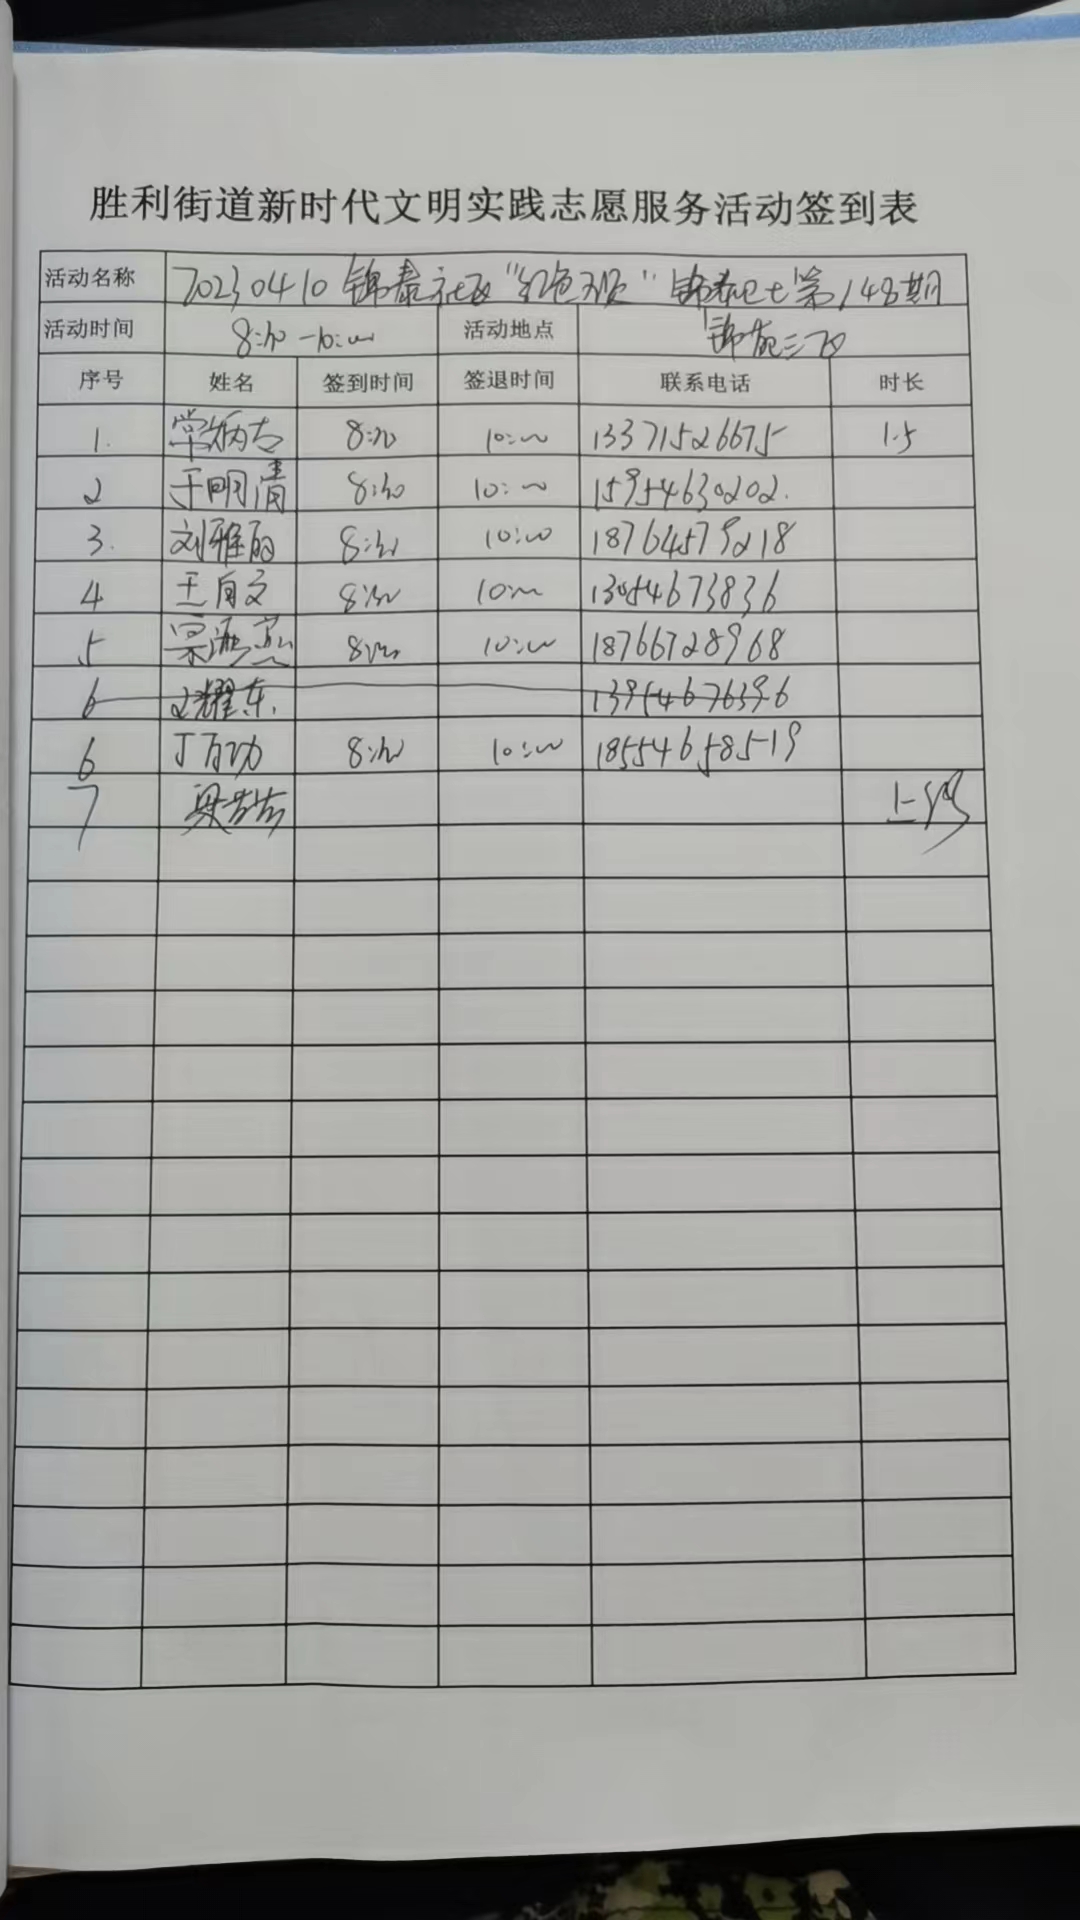 胜利街道新时代文明实践志愿服务活动签到表
活动名称 20230410 锦泰社区“红色 ” 锦泰卫士第148期
活动时间 8:30-10:00 活动地点 锦苑三区
序号 姓名 签到时间 签退时间 联系电话 时长
1. 常炳吉 8:30 10:00 13371526675 1.5
2 于明清 8:30 10:00 15954630202.
3. 刘雅丽 8:30 10:00 18764579218
4 王自文 8:30 10:00 13054673836
5 8:30 10:00 18766728968
6 耀东. 13954676396
6 丁有功 8:30 10:00 18554658519
7